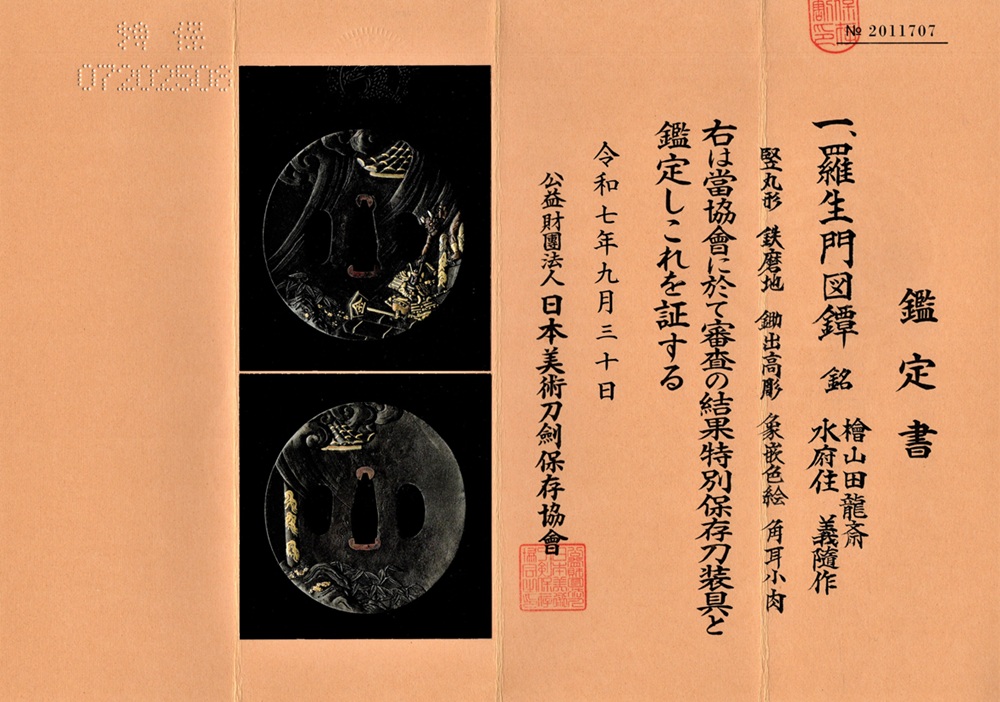 № 2011707
鑑定書
一、羅生門図鐔 銘 檜山田龍斎
水府住 義隨作
竪丸形 鉄磨地 鋤出高彫 象嵌色絵 角耳小肉
右は當協會に於て審査の結果特別保存刀装具と
鑑定しこれを証する
令和七年九月三十日
公益財團法人 日本美術刀劍保存協會
特保
07202506